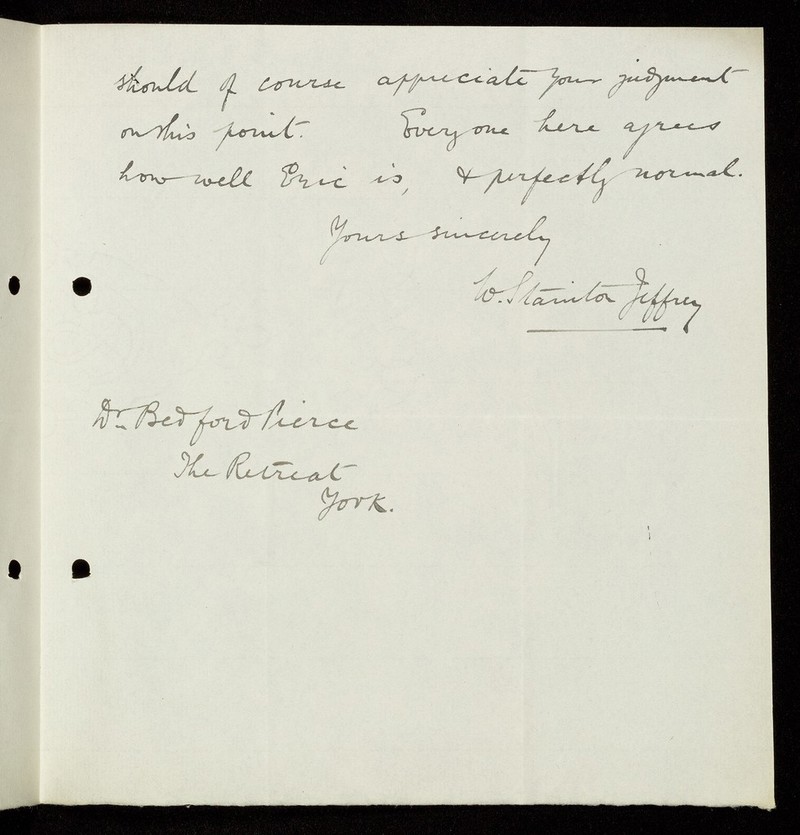 should of course appreciate your judgment
on this point. Everyone here agrees
how well Eric is, & perfectly normal.
Yours sincerely
W. Stainton Jeffrey
Dr Bedford Pierce
The Retreat
York.